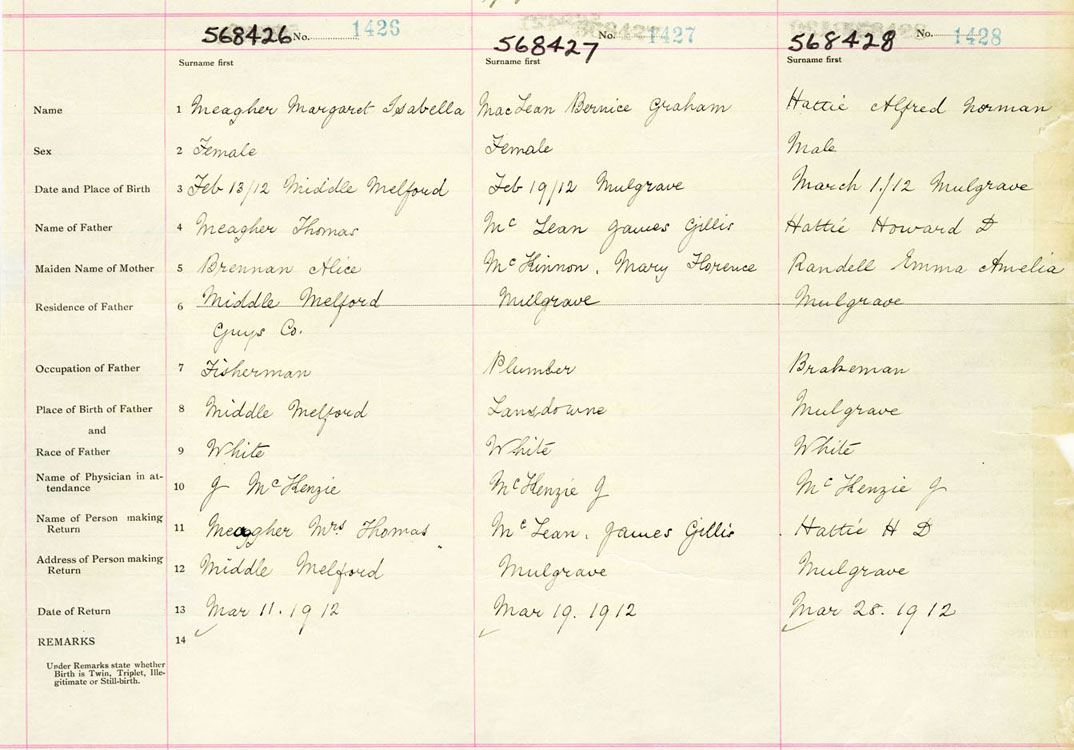 568426 No. 1426 568427 No. 1427 568428 No. 1428
Surname first Surname first Surname first
Name 1 Meagher Margaret Isabella MacLean Bernice Graham Hattie Alfred Norman
Sex 2 Female Female Male
Date and Place of Birth 3 Feb 13/12 Middle Melford Feb 19/12 Mulgrave March 1./12 Mulgrave
Name of Father 4 Meagher Thomas Mc Lean James Gillis Hattie Howard D
Maiden Name of Mother 5 Brennan Alice McKinnon, Mary Florence Randell Emma Amelia
Residence of Father 6 Middle Melford Mulgrave Mulgrave
Guys Co.
Occupation of Father 7 Fisherman Plumber Brakeman
Place of Birth of Father 8 Middle Melford Lansdowne Mulgrave
and
Race of Father 9 White White White
Name of Physician in at-
tendance 10 J McKenzie McKenzie J Mc Kenzie J
Name of Person making
Return 11 Meagher Mrs Thomas McLean, James Gillis Hattie H D
Address of Person making
Return 12 Middle Melford Mulgrave Mulgrave
Date of Return 13 Mar 11. 1912 Mar 19. 1912 Mar 28. 1912
REMARKS 14
Under Remarks state whether
Birth is Twin, Triplet, Ille-
gitimate or Still-birth.